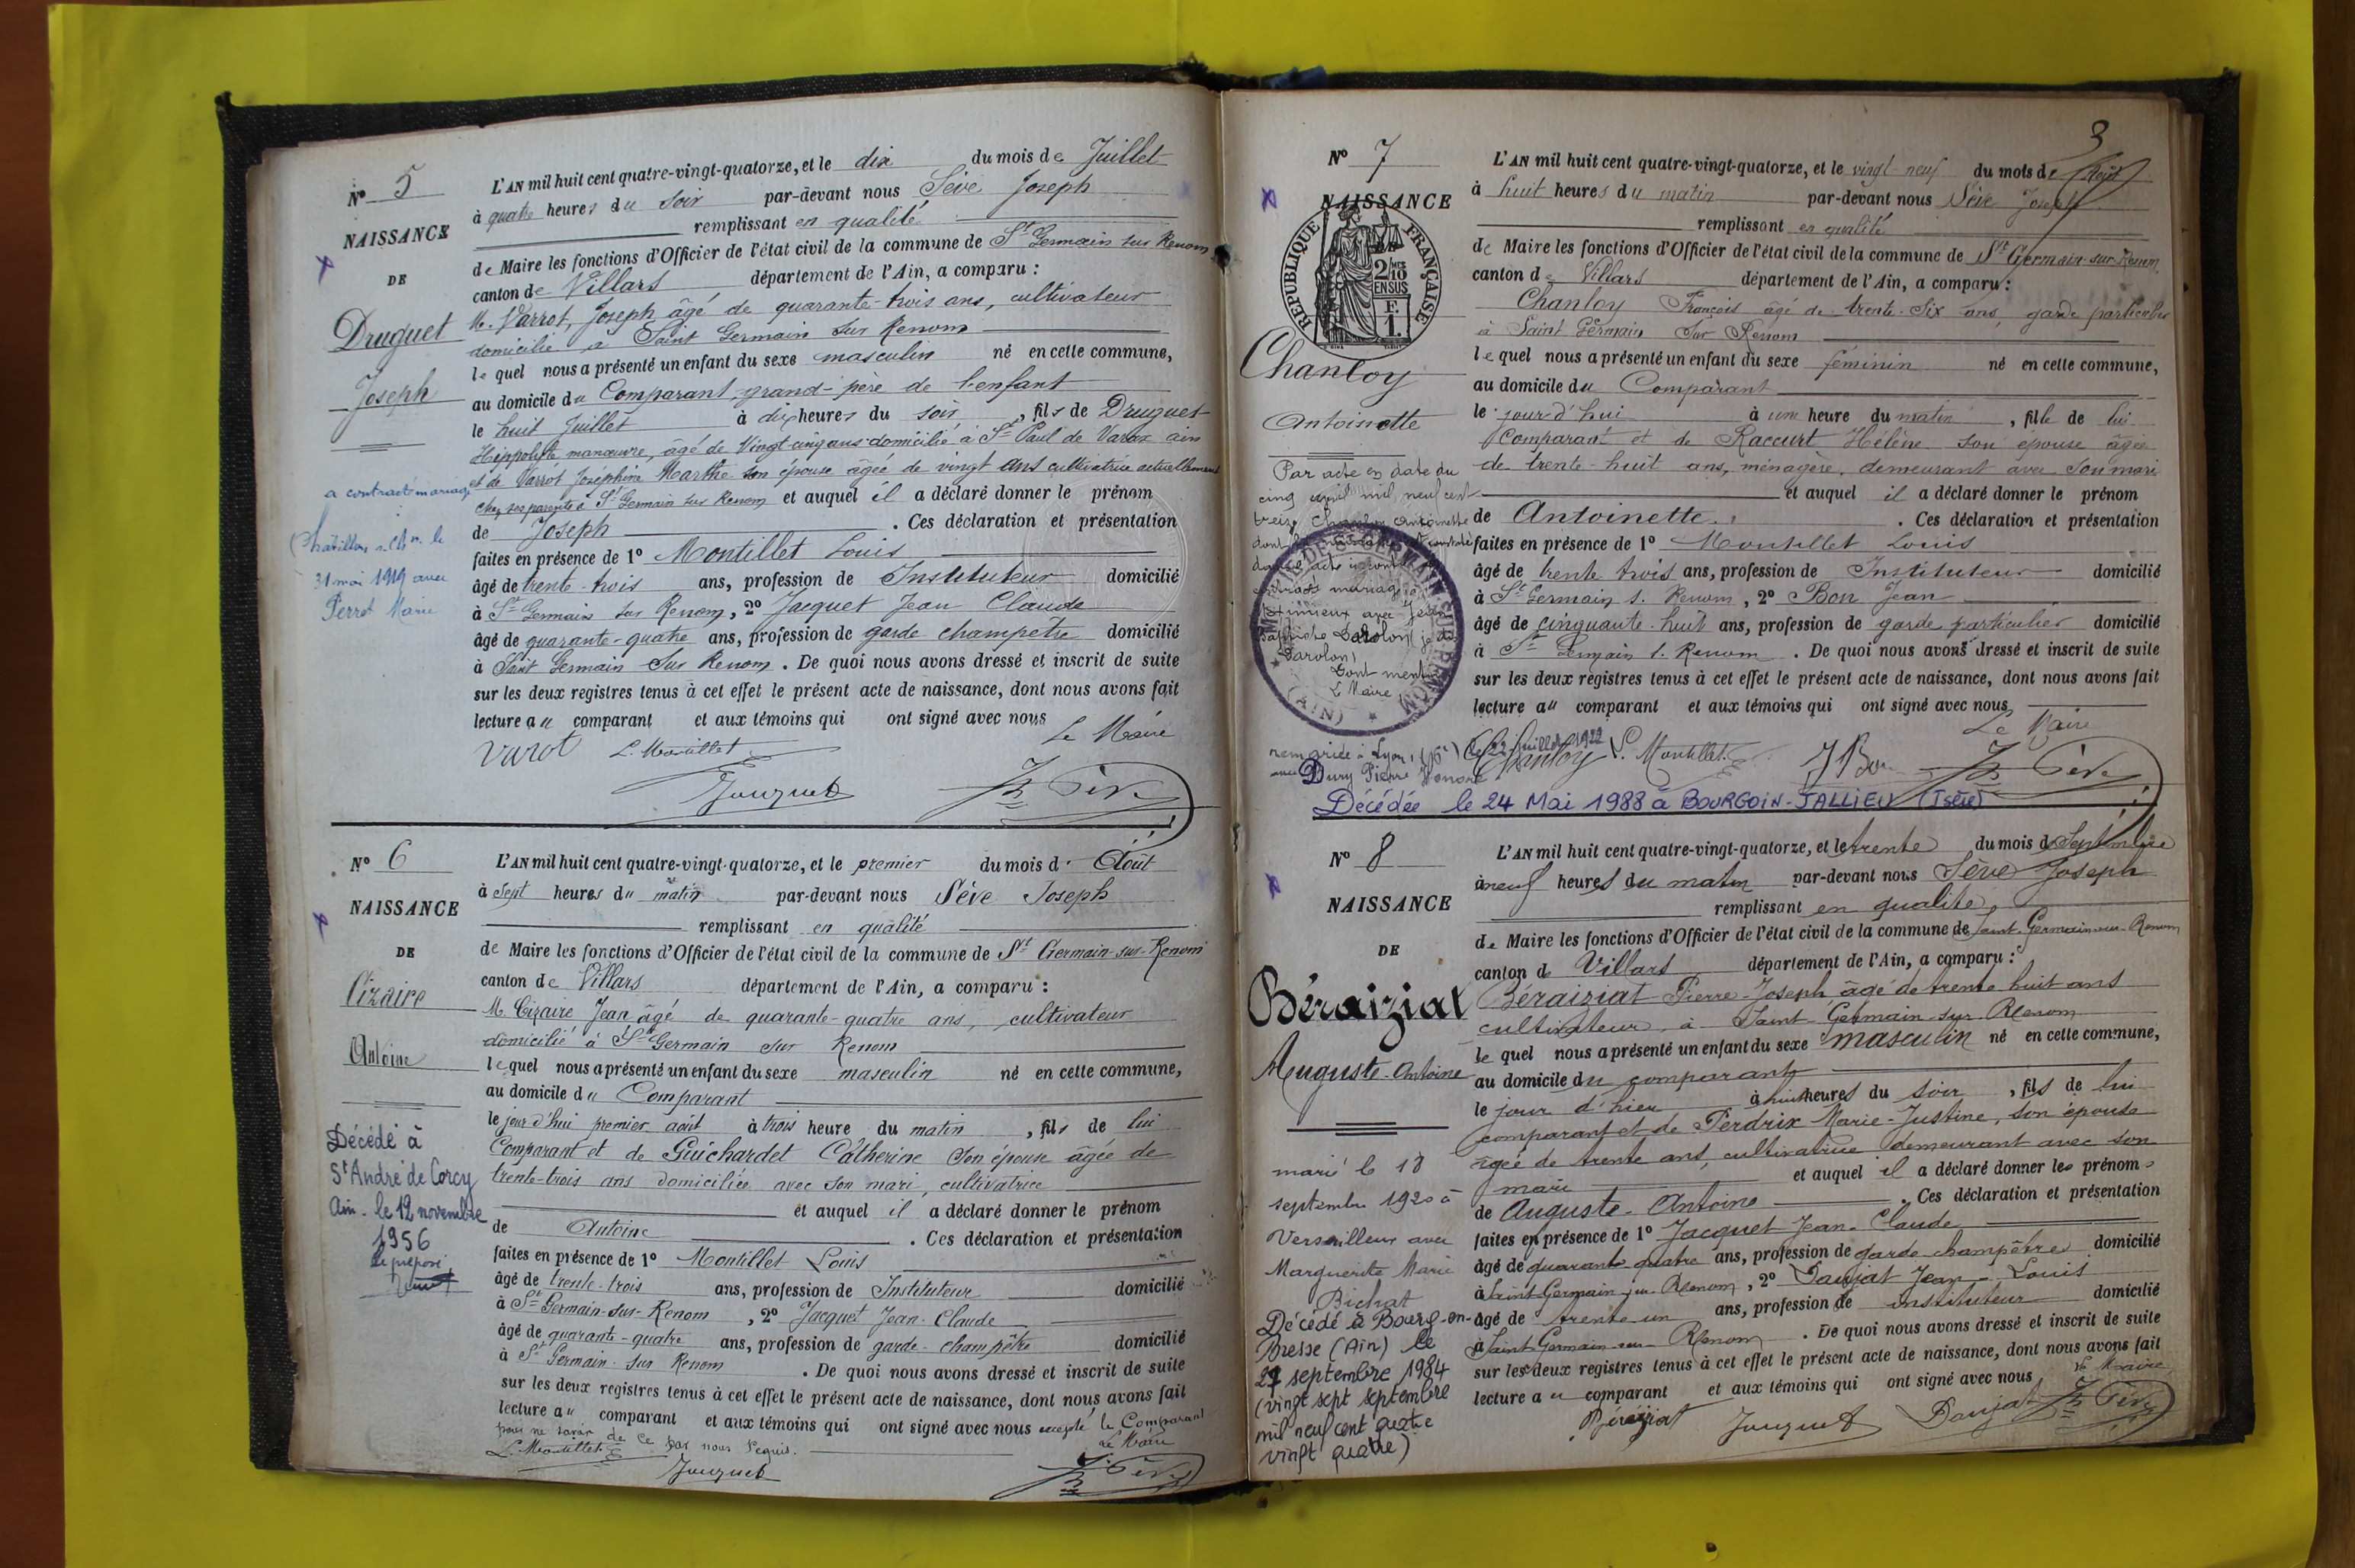 N° 5
NAISSANCE
DE
Druguet
Joseph
a contracté mariage
Châtillon s. Ch. le
31 mai 1919 avec
Perrot Marie
L'AN mil huit cent quatre-vingt-quatorze, et le dix du mois de Juillet
à quatre heures du soir par-devant nous Sève Joseph
remplissant en qualité
de Maire les fonctions d'Officier de l'état civil de la commune de St Germain sur Renom
canton de Villars département de l'Ain, a comparu :
M. Varrot, Joseph âgé de quarante-trois ans, cultivateur
domicilié à Saint Germain sur Renom
lequel nous a présenté un enfant du sexe masculin né en cette commune,
au domicile du Comparant, grand-père de l'enfant
le huit Juillet à dix heures du soir, fils de Druguet
Hippolyte manœuvre, âgé de Vingt-cinq ans domicilié à St Paul de Varax ain
et de Varrot Joséphine Marthe son épouse âgée de vingt ans cultivatrice actuellement
chez ses parents à St Germain sur Renom et auquel il a déclaré donner le prénom
de Joseph . Ces déclaration et présentation
faites en présence de 1° Montillet Louis
âgé de trente-trois ans, profession de Instituteur domicilié
à St Germain sur Renom, 2° Jacquet Jean Claude
âgé de quarante-quatre ans, profession de garde champêtre domicilié
à Saint Germain sur Renom . De quoi nous avons dressé et inscrit de suite
sur les deux registres tenus à cet effet le présent acte de naissance, dont nous avons fait
lecture au comparant et aux témoins qui ont signé avec nous
Le Maire
Varot L. Montillet
Jacquet J. Sève
N° 6
NAISSANCE
DE
Cizaire
Antoine
Décédé à
St André de Corcy
Ain - le 12 novembre
1956
Le préposé
L'AN mil huit cent quatre-vingt-quatorze, et le premier du mois d' Août
à sept heures du matin par-devant nous Sève Joseph
remplissant en qualité
de Maire les fonctions d'Officier de l'état civil de la commune de St Germain-sur-Renom
canton de Villars département de l'Ain, a comparu :
M. Cizaire Jean âgé de quarante-quatre ans, cultivateur
domicilié à St Germain sur Renom
lequel nous a présenté un enfant du sexe masculin né en cette commune,
au domicile du Comparant
le jour d'hui premier août à trois heure du matin, fils de lui
Comparant et de Guichardet Catherine son épouse âgée de
trente-trois ans domiciliée avec son mari, cultivatrice
et auquel il a déclaré donner le prénom
de Antoine . Ces déclaration et présentation
faites en présence de 1° Montillet Louis
âgé de trente-trois ans, profession de Instituteur domicilié
à St Germain-sur-Renom, 2° Jacquet Jean-Claude
âgé de quarante-quatre ans, profession de garde-champêtre domicilié
à St Germain sur Renom . De quoi nous avons dressé et inscrit de suite
sur les deux registres tenus à cet effet le présent acte de naissance, dont nous avons fait
lecture au comparant et aux témoins qui ont signé avec nous excepté le Comparant
pour ne savoir de ce par nous requis.
Le Maire
L. Montillet
Jacquet J. Sève
3
N° 7
NAISSANCE
RÉPUBLIQUE FRANÇAISE
2/10 MES
EN SUS
F.
1.
Chanloy
Antoinette
Par acte en date du
cinq avril mil neuf cent
treize Chanloy Antoinette
dont la
dans l'acte
contracté mariage à
avec Jean
Baptiste
Dont mention
Le Maire
MAIRIE DE ST GERMAIN SUR RENOM
(AIN)
remariée à Lyon, (6e) le 22 juillet 1922
avec Dury Pierre Honoré
Décédée le 24 Mai 1988 à BOURGOIN-JALLIEU (Isère)
L'AN mil huit cent quatre-vingt-quatorze, et le vingt-neuf du mois de Août
à huit heures du matin par-devant nous Sève Joseph
remplissant en qualité
de Maire les fonctions d'Officier de l'état civil de la commune de St Germain-sur-Renom
canton de Villars département de l'Ain, a comparu :
Chanloy François âgé de trente-six ans, garde particulier
à Saint Germain sur Renom
lequel nous a présenté un enfant du sexe féminin né en cette commune,
au domicile du Comparant
le jour d'hui à une heure du matin, fille de lui
Comparant et de Raccurt Hélène son épouse âgée
de trente-huit ans, ménagère, demeurant avec son mari
et auquel il a déclaré donner le prénom
de Antoinette . Ces déclaration et présentation
faites en présence de 1° Montillet Louis
âgé de trente trois ans, profession de Instituteur domicilié
à St Germain s. Renom, 2° Bon Jean
âgé de cinquante-huit ans, profession de garde particulier domicilié
à St Germain s. Renom . De quoi nous avons dressé et inscrit de suite
sur les deux registres tenus à cet effet le présent acte de naissance, dont nous avons fait
lecture au comparant et aux témoins qui ont signé avec nous
Le Maire
Chanloy L. Montillet J Bon J. Sève
N° 8
NAISSANCE
DE
Béraiziat
Auguste-Antoine
marié le 18
septembre 1920 à
Versailleux avec
Marguerite Marie
Bichat
Décédé à Bourg-en-
Bresse (Ain) le
27 septembre 1984
(vingt sept septembre
mil neuf cent quatre
vingt quatre)
L'AN mil huit cent quatre-vingt-quatorze, et le trente du mois de Septembre
à neuf heures du matin par-devant nous Sève Joseph
remplissant en qualité,
de Maire les fonctions d'Officier de l'état civil de la commune de Saint-Germain-sur-Renom
canton de Villars département de l'Ain, a comparu :
Béraiziat Pierre-Joseph âgé de trente huit ans
cultivateur, à Saint-Germain-sur-Renom
lequel nous a présenté un enfant du sexe masculin né en cette commune,
au domicile du comparant
le jour d'hier à huit heures du soir, fils de lui
comparant et de Perdrix Marie-Justine, son épouse
âgée de trente ans, cultivatrice demeurant avec son
mari et auquel il a déclaré donner les prénoms
de Auguste-Antoine . Ces déclaration et présentation
faites en présence de 1° Jacquet Jean-Claude
âgé de quarante-quatre ans, profession de garde-champêtre domicilié
à Saint-Germain-sur-Renom, 2° Danjat Jean-Louis
âgé de trente un ans, profession de instituteur domicilié
à Saint-Germain-sur-Renom . De quoi nous avons dressé et inscrit de suite
sur les deux registres tenus à cet effet le présent acte de naissance, dont nous avons fait
lecture au comparant et aux témoins qui ont signé avec nous
Le Maire
Béraiziat Jacquet Danjat J. Sève